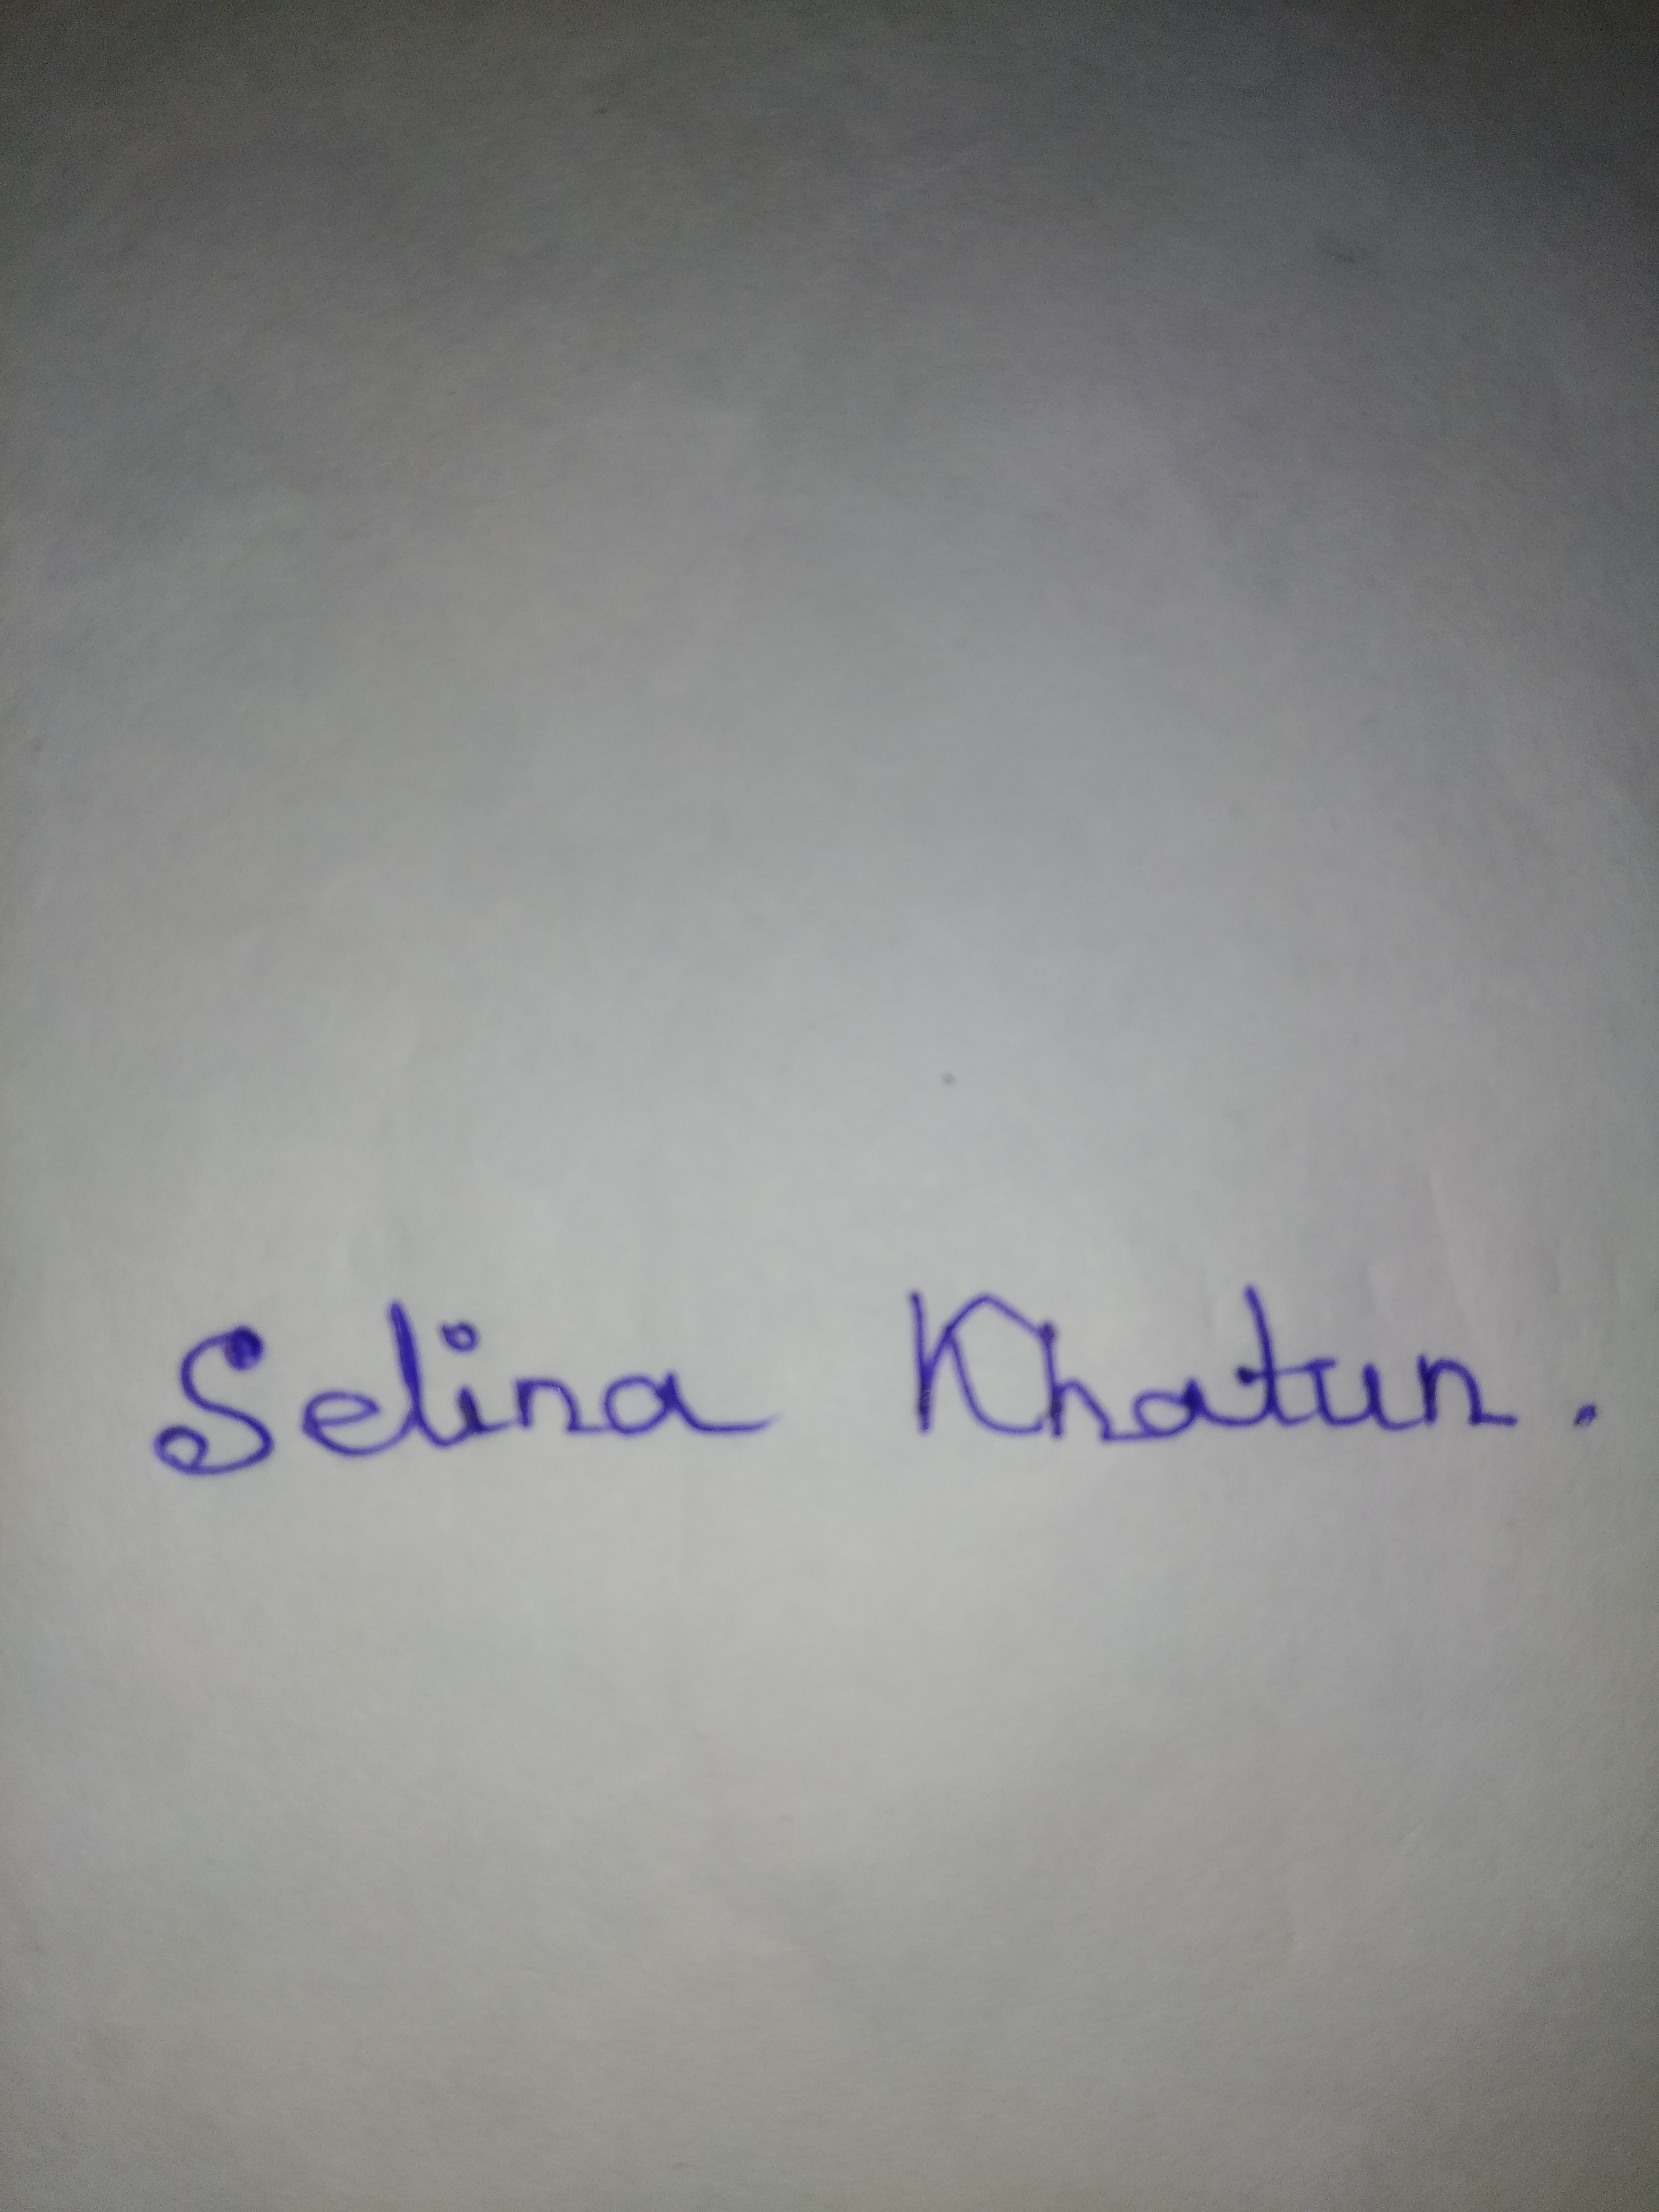 Selina Khatun.